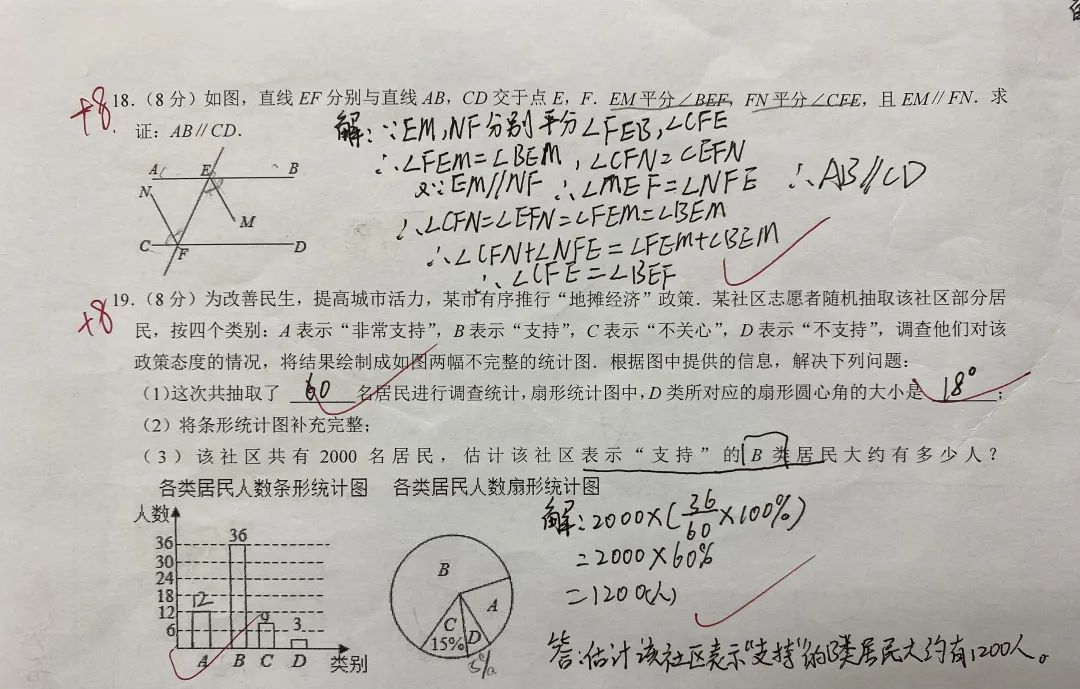 +8.
18.（8 分）如图，直线 EF 分别与直线 AB，CD 交于点 E，F．EM 平分∠BEF，FN 平分∠CFE，且 EM∥FN．求
证：AB∥CD．
解：∵EM,NF分别平分∠FEB,∠CFE
∴∠FEM=∠BEM，∠CFN=∠EFN
又∵EM//NF ∴∠MEF=∠NFE ∴AB//CD
∴∠CFN=∠EFN=∠FEM=∠BEM
∴∠CFN+∠NFE=∠FEM+∠BEM
∴∠CFE=∠BEF
A E B
N
M
C F D
+8
19.（8 分）为改善民生，提高城市活力，某市有序推行“地摊经济”政策．某社区志愿者随机抽取该社区部分居
民，按四个类别：A 表示“非常支持”，B 表示“支持”，C 表示“不关心”，D 表示“不支持”，调查他们对该
政策态度的情况，将结果绘制成如图两幅不完整的统计图．根据图中提供的信息，解决下列问题：
(1)这次共抽取了 60 名居民进行调查统计，扇形统计图中，D 类所对应的扇形圆心角的大小是 18°；
（2）将条形统计图补充完整；
（3）该社区共有 2000 名居民，估计该社区表示“支持”的 B 类居民大约有多少人？
各类居民人数条形统计图 各类居民人数扇形统计图
人数
36
30
24
18
12
6
12 36 9 3
A B C D 类别
B
A
C D
15%
5%
解：2000×(36/60×100%)
=2000×60%
=1200(人)
答：估计该社区表示“支持”的B类居民大约有1200人。